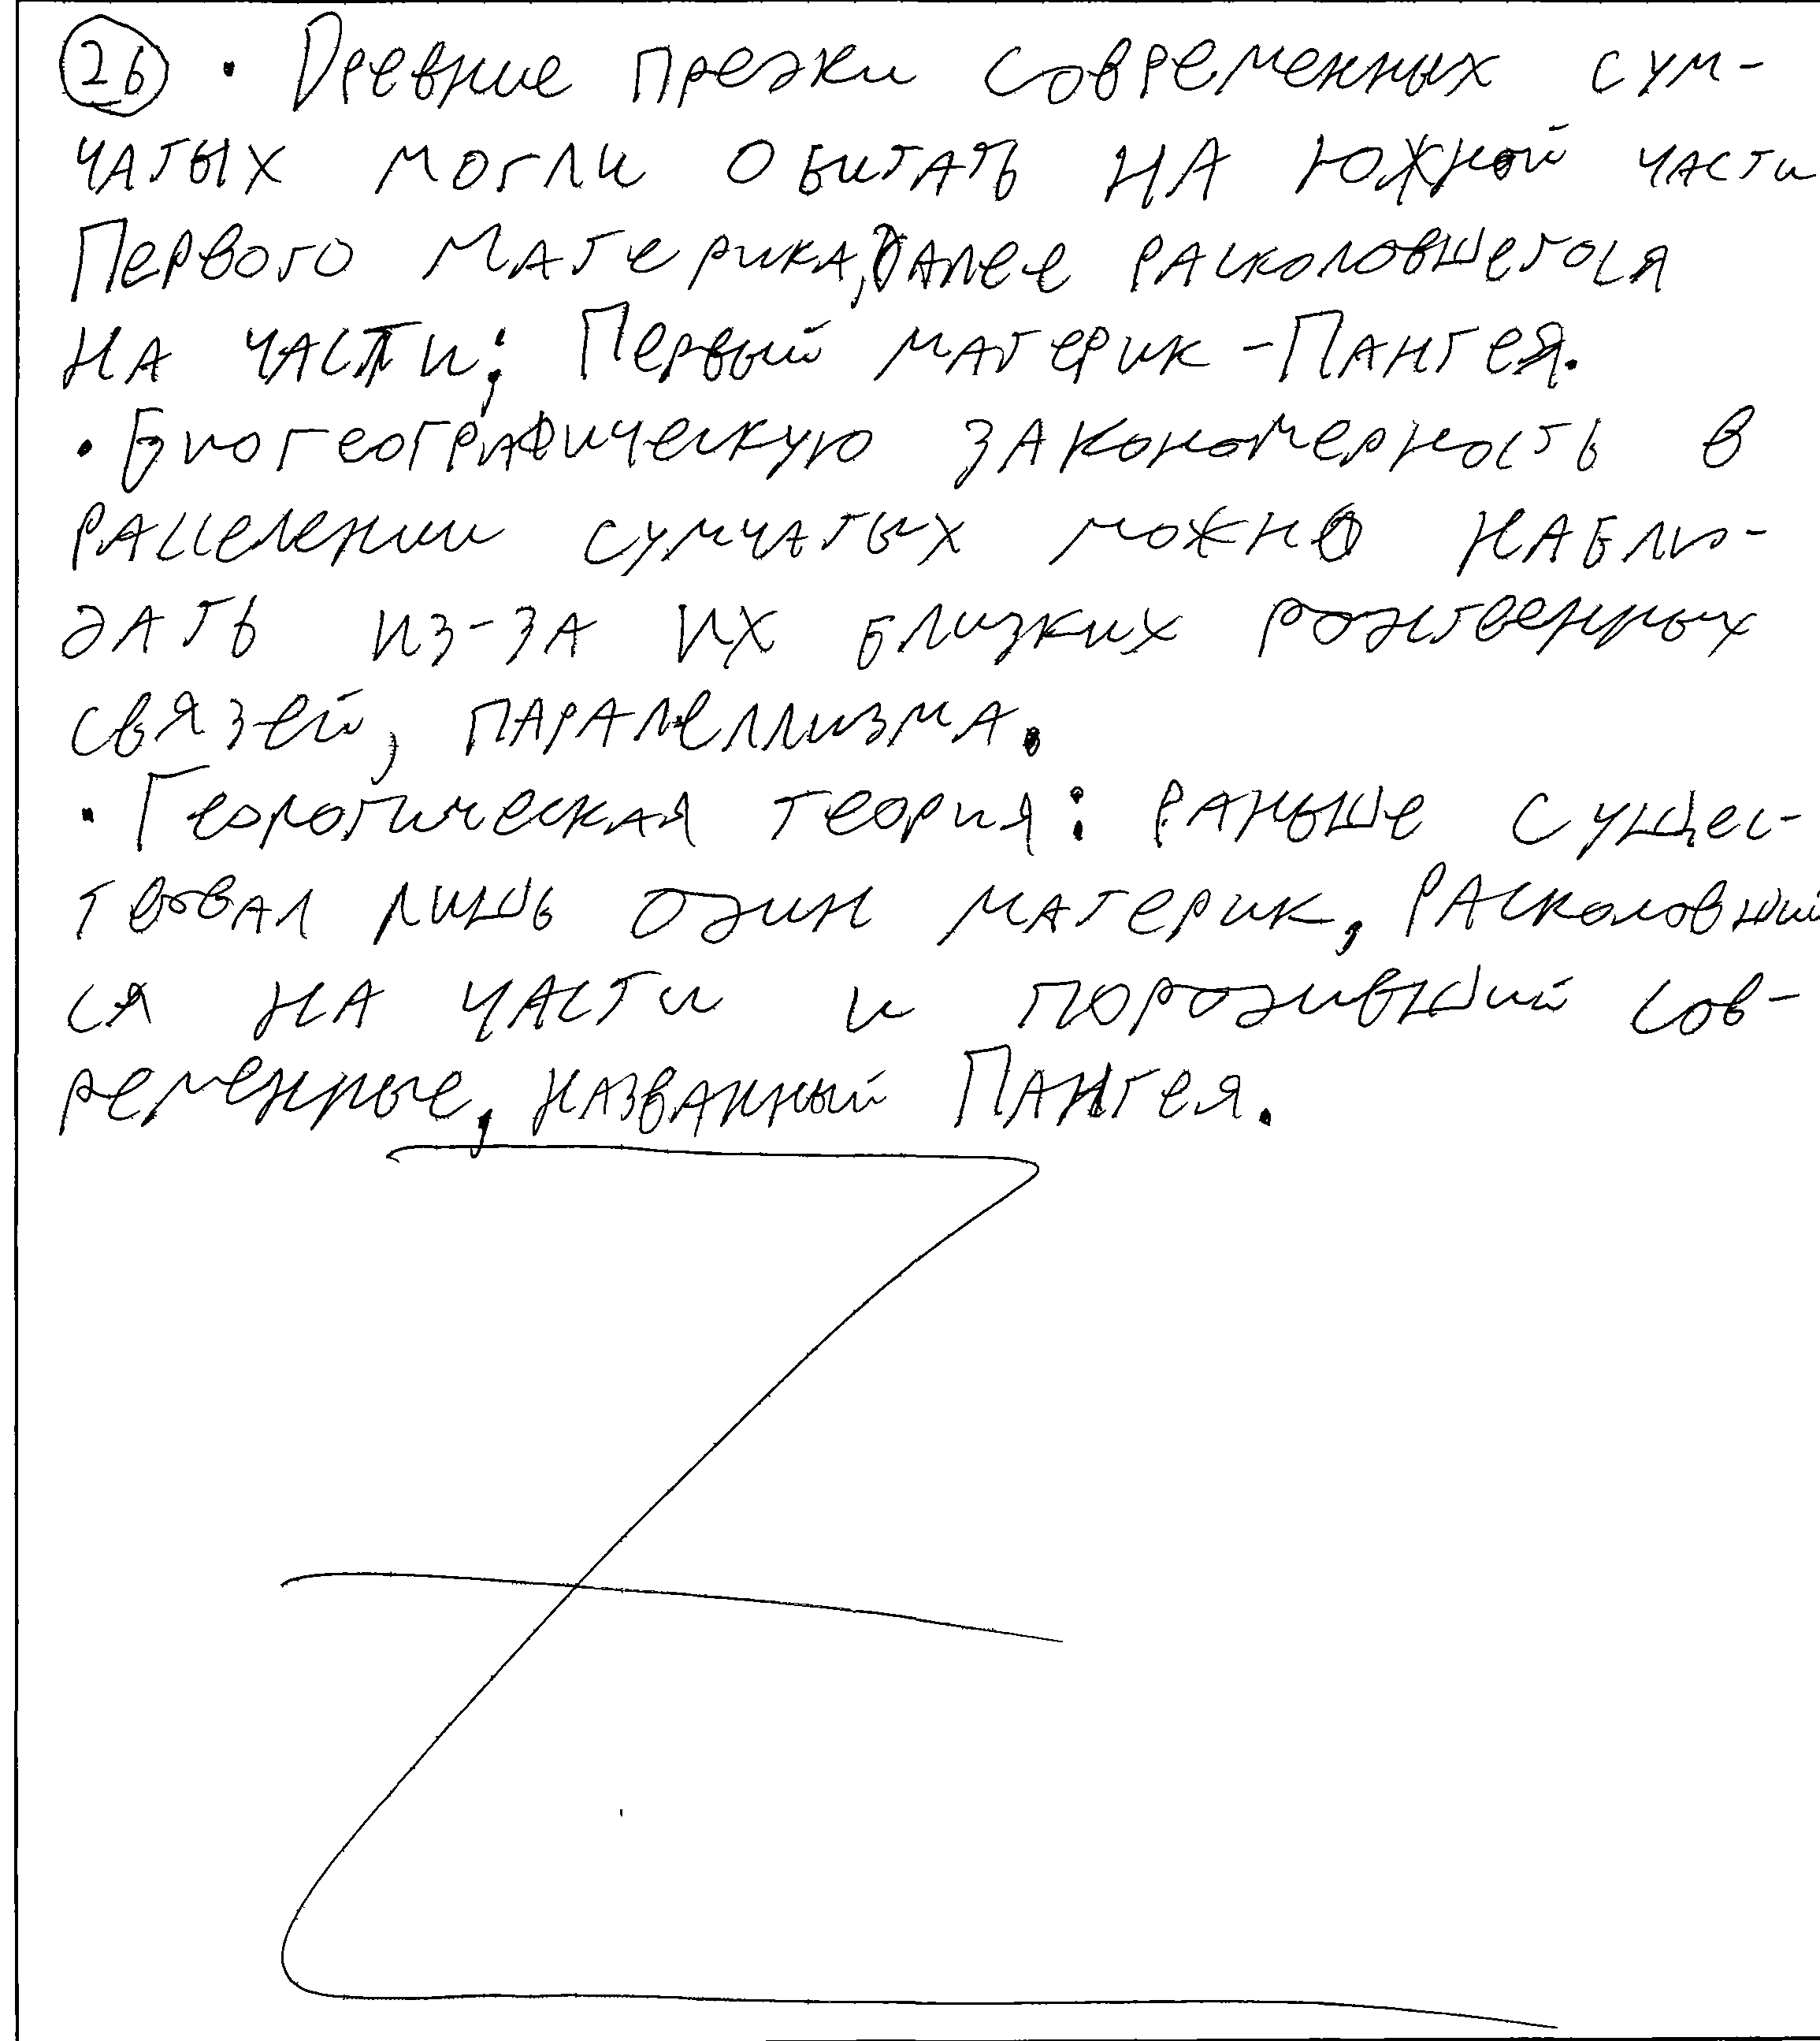 26 • Древние предки современных сум-
чатых могли обитать на южной части
Первого материка, далее расколовшегося
на части; Первый материк - Пангея.
• Биогеографическую закономерность в
расселении сумчатых можно наблю-
дать из-за их близких родственных
связей, параллелизма.
• Геологическая теория: раньше сущес-
твовал лишь один материк, расколовший
ся на части и породивший сов-
ременные, названный Пангея.